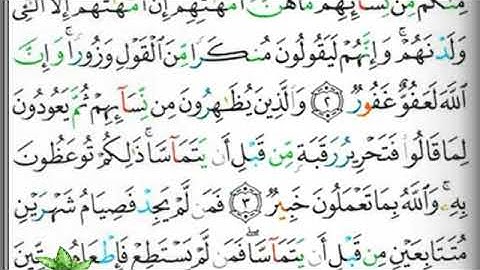 مِنكُم مِّن نِّسَآئِهِم مَّا هُنَّ أُمَّهَٰتِهِمْ ۖ إِنْ أُمَّهَٰتُهُمْ إِلَّا ٱلَّٰٓـِٔى
وَلَدْنَهُمْ ۚ وَإِنَّهُمْ لَيَقُولُونَ مُنكَرًا مِّنَ ٱلْقَوْلِ وَزُورًا ۚ وَإِنَّ
ٱللَّهَ لَعَفُوٌّ غَفُورٌ ٢ وَٱلَّذِينَ يُظَٰهِرُونَ مِن نِّسَآئِهِمْ ثُمَّ يَعُودُونَ
لِمَا قَالُوا۟ فَتَحْرِيرُ رَقَبَةٍ مِّن قَبْلِ أَن يَتَمَآسَّا ۚ ذَٰلِكُمْ تُوعَظُونَ
بِهِۦ ۚ وَٱللَّهُ بِمَا تَعْمَلُونَ خَبِيرٌ ٣ فَمَن لَّمْ يَجِدْ فَصِيَامُ شَهْرَيْنِ
مُتَتَابِعَيْنِ مِن قَبْلِ أَن يَتَمَآسَّا ۖ فَمَن لَّمْ يَسْتَطِعْ فَإِطْعَامُ سِتِّينَ